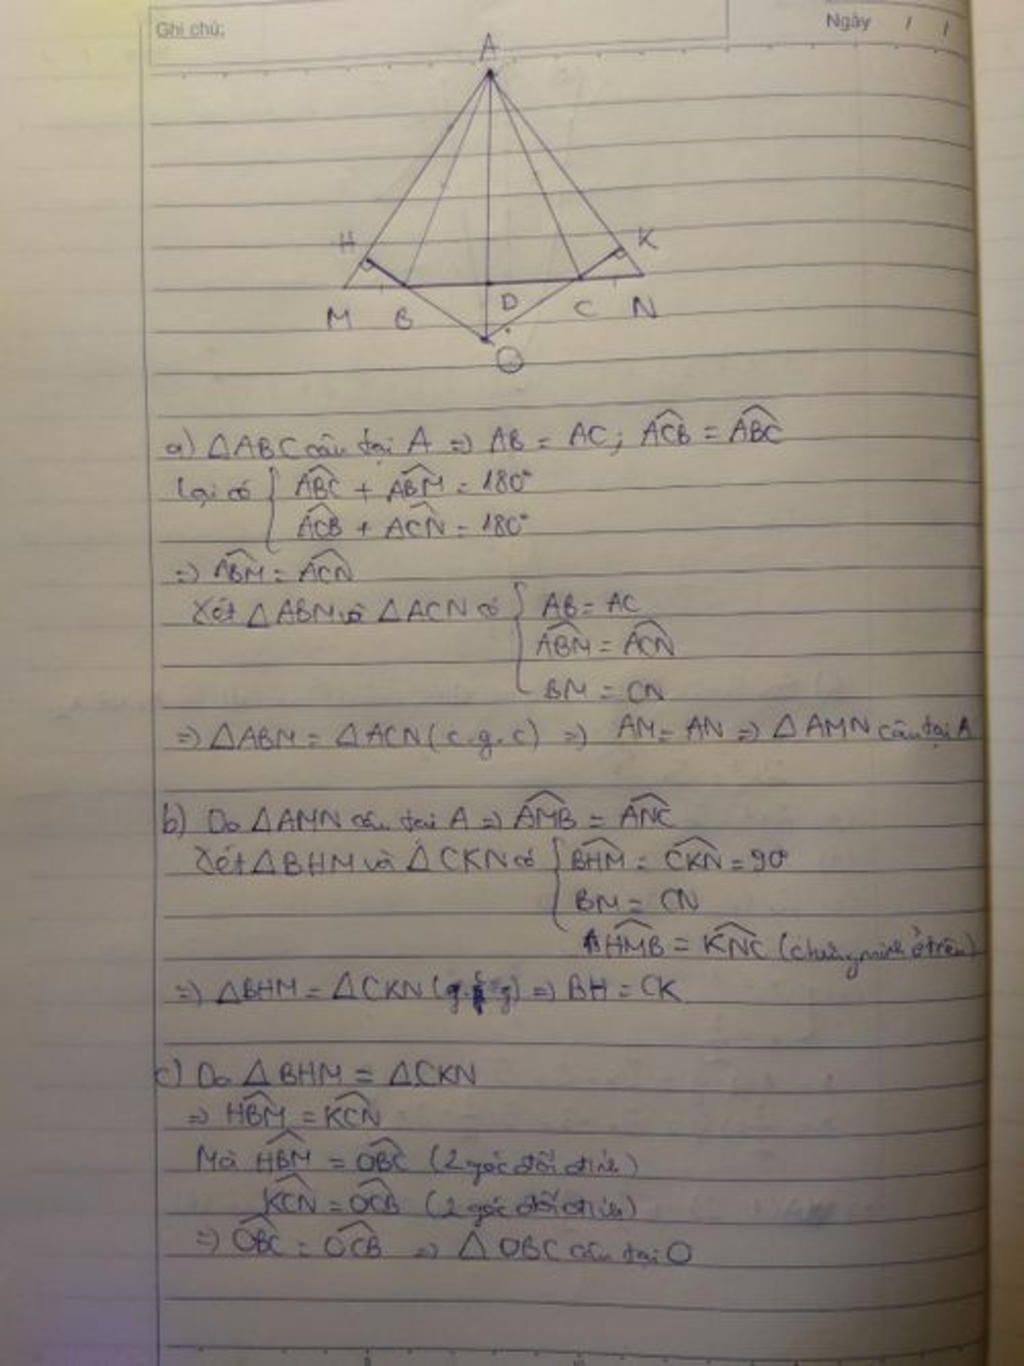 Ghi chú:
Ngày / /
A
H
K
M B D C N
O
a) △ABC cân tại A => AB = AC; \widehat{ACB} = \widehat{ABC}
lại có { \widehat{ABC} + \widehat{ABM} = 180°
\widehat{ACB} + \widehat{ACN} = 180°
=> \widehat{ABM} = \widehat{ACN}
Xét △ABM và △ACN có { AB = AC
\widehat{ABM} = \widehat{ACN}
BM = CN
=> △ABM = △ACN (c.g.c) => AM = AN => △AMN cân tại A
b) Do △AMN cân tại A => \widehat{AMB} = \widehat{ANC}
Xét △BHM và △CKN có { \widehat{BHM} = \widehat{CKN} = 90°
BM = CN
\widehat{HMB} = \widehat{KNC} (chứng minh ở trên)
=> △BHM = △CKN (g. g) => BH = CK
c) Do △BHM = △CKN
=> \widehat{HBM} = \widehat{KCN}
Mà \widehat{HBM} = \widehat{OBC} (2 góc đối đỉnh)
\widehat{KCN} = \widehat{OCB} (2 góc đối đỉnh)
=> \widehat{OBC} = \widehat{OCB} => △OBC cân tại O